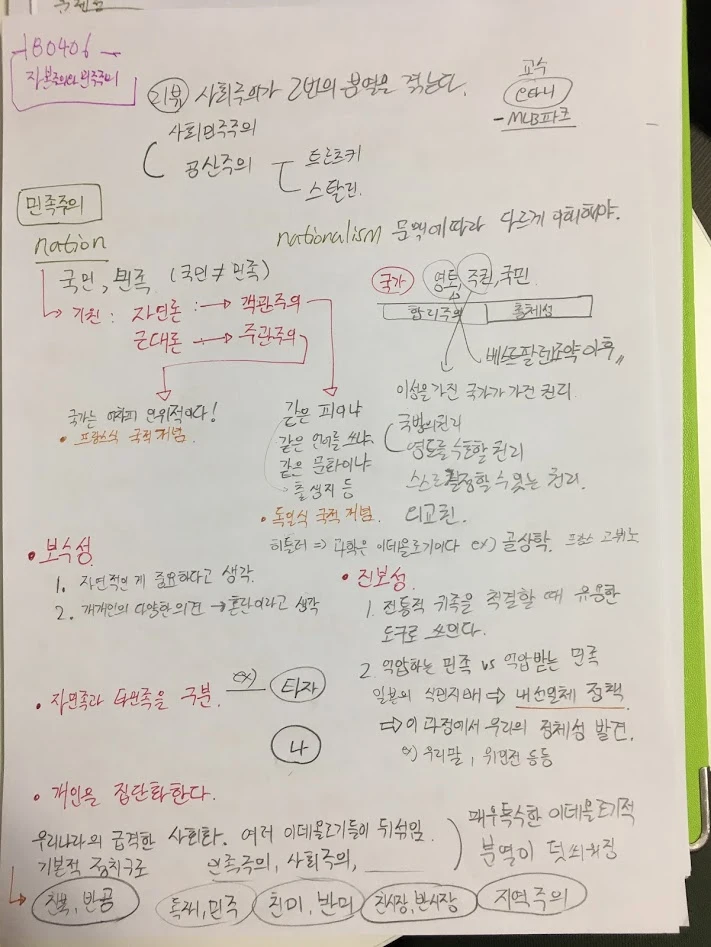 180406
자본주의와 민주주의
리뷰 사회주의가 2번의 분열을 겪는다.
교수
- MLB파크
사회민주주의
공산주의
트로츠키
스탈린.
민족주의
nation
nationalism 문맥에 따라 다르게 이해해야.
국민, 민족 (국민 ≠ 민족)
국가 영토, 주권, 국민
↳ 기원 : 자연론 : → 객관주의
근대론 → 주관주의
합리주의 총체성
베스트팔렌조약 이후
국가는 어차피 인위적이다!
• 프랑스식 국적 개념.
같은 피이냐
같은 언어를 쓰냐.
같은 문화이냐
출생지 등
• 독일식 국적 개념.
이성을 가진 국가가 가진 권리
국방의 권리
영토를 수호할 권리
스스로 결정할 수 있는 권리.
외교권.
히틀러 ⇒ 과학은 이데올로기이다 ex) 골상학. 프랑스 고비노
• 보수성
1. 자연적인 게 중요하다고 생각.
2. 개개인의 다양한 의견 → 혼란이라고 생각
• 진보성.
1. 전통적 귀족을 척결할 때 유용한
도구로 쓰인다.
2. 억압하는 민족 vs 억압받는 민족
일본의 식민지배 ⇒ 내선일체 정책
⇒ 이 과정에서 우리의 정체성 발견.
ex) 우리말, 위인전 등등
• 자민족과 타민족을 구분. ex) 타자
나
• 개인을 집단화한다.
우리나라의 급격한 사회화. 여러 이데올로기들이 뒤섞임.
기본적 정치구도 민족주의, 사회주의,
매우 독특한 이데올로기적
분열이 덧씌워짐
친북, 반공
독재, 민주
친미, 반미
친시장, 반시장
지역주의